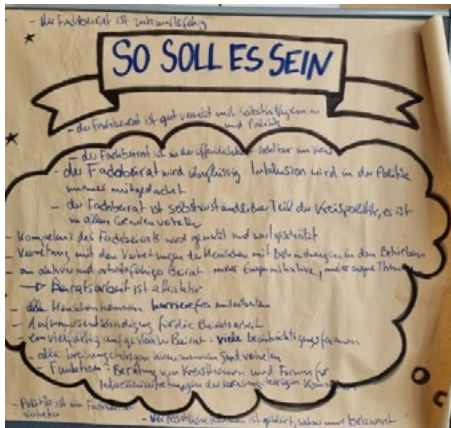 - der Fachbeirat ist zukunftsfähig
SO SOLL ES SEIN
- der Fachbeirat ist gut vernetzt mit
und Politik
- der Fachbeirat ist in der Öffentlichkeit sichtbar im Kreis
- der Fachbeirat wird überflüssig: Inklusion wird in der Politik
immer mitgedacht
- der Fachbeirat ist selbstverständlicher Teil der Kreispolitik, er ist
in allen Gremien vertreten
- Kompetenz des Fachbeirats wird genutzt und wertgeschätzt
- Vernetzung mit den Vertretungen der Menschen mit Behinderungen in den Betrieben
- ein aktiver und arbeitsfähiger Beirat mehr Eigeninitiative, mehr eigene Themen
→ Beiratsarbeit ist attraktiv
- alle Menschen können barrierefrei mitarbeiten
- Aufwandsentschädigung für die Beiratsarbeit
- ein vielfältig aufgestellter Beirat: viele Beeinträchtigungsformen
- alle kreisangehörigen Kommunen sind vertreten
- Funktion: Beratung von Kreisthemen und Forum für
der kreisangehörigen Kommunen
- Politik ist im Fachbeirat
vertreten
ist geklärt, und bekannt